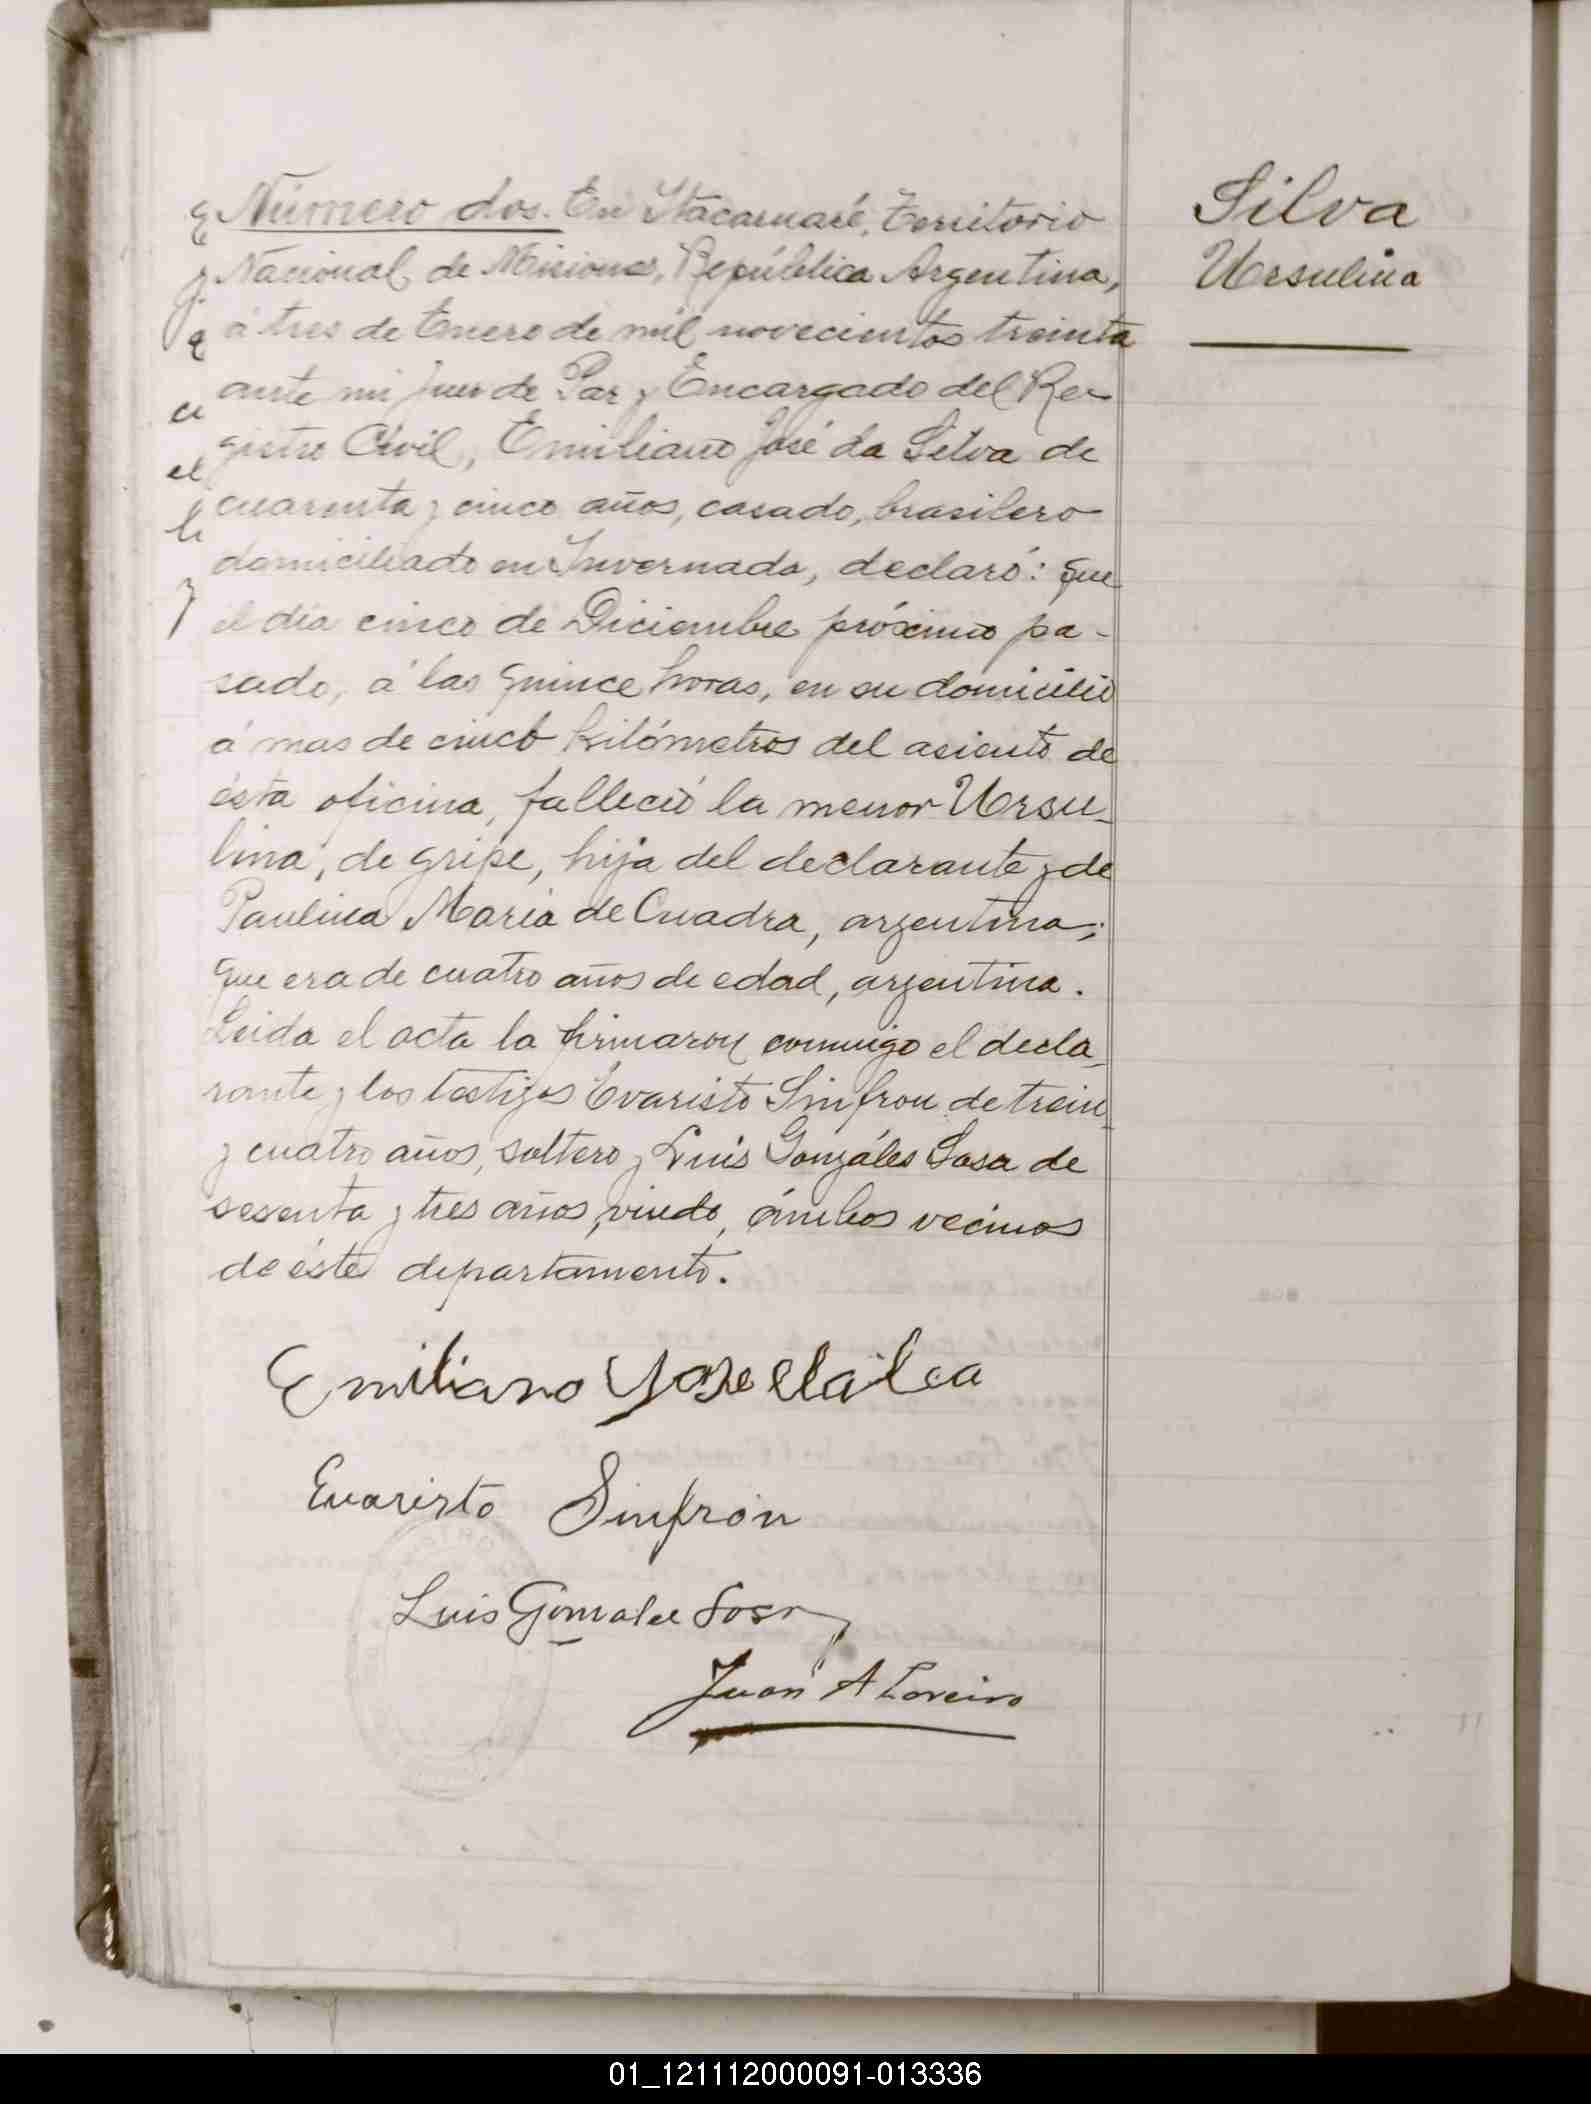 Número dos. En Itacaruaré, Territorio
Nacional de Misiones, República Argentina,
á tres de Enero de mil novecientos treinta
ante mi Juez de Paz y Encargado del Re-
gistro Civil, Emiliano José da Silva de
cuarenta y cinco años, casado, brasilero
domiciliado en Invernada, declaró: que
el dia cinco de Diciembre próximo pa-
sado, á las quince horas, en su domicilio
á mas de cinco kilómetros del asiento de
ésta oficina, falleció la menor Ursu-
lina, de gripe, hija del declarante y de
Paulina Maria de Cuadra, argentina;
que era de cuatro años de edad, argentina.
Leida el acta la firmaron conmigo el decla-
rante y los testigos Evaristo Sinfron de trein-
y cuatro años, soltero y Luis Gonzáles Sosa de
sesenta y tres años, viudo, ámbos vecinos
de éste departamento.
Emiliano Jose
Evaristo Sinfron
Luis Gonzalez Sosa
Juan A
Silva
Ursulina
01_121112000091-013336